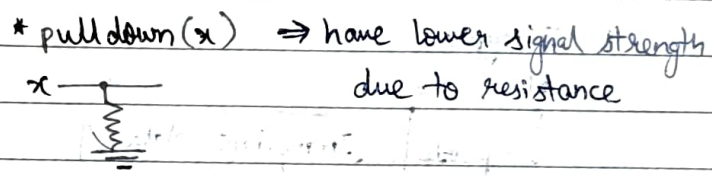 * pulldown(x) ⇒ have lower signal strength
due to resistance
x